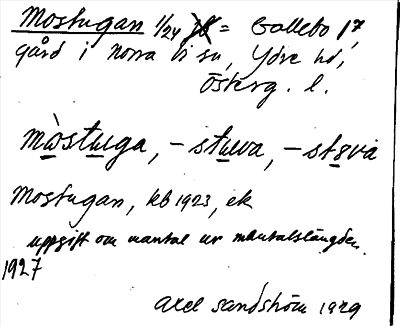 Mostugan 1/24 = Gallebo 17
gård i Norra Vi sn, Ydre hd,
Österg. l.
mòstuga, -stuwa, -stova
Mostugan, kb 1923, ek
uppgift om mantal ur mantalslängden
1927
Axel Sandström 1929